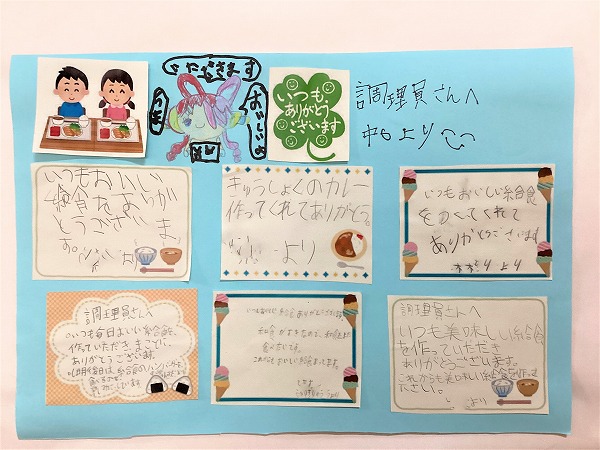 いただきます
おいしいよ
いつも
ありがとう
ございます
調理員さんへ
より
いつもおいしい
給食ありが
とうござい
ま
す。
きゅうしょくのカレー
作ってくれてありがとう。
より
いつもおいしい給食
をつくてくれて
ありがとうございます
より
調理員さんへ
いつも毎日おいしい給食
作っていただきまことに、
ありがとうございます。
いつもおいしい給食ありがとうございます
和食がすきなので、和食を
食べたいです。
これからもおいしい給食まってます。
より
調理員さんへ
いつも美味しい給食
を作っていただき
ありがとうございます。
これからも美味しい給食を作って
ださい。
より